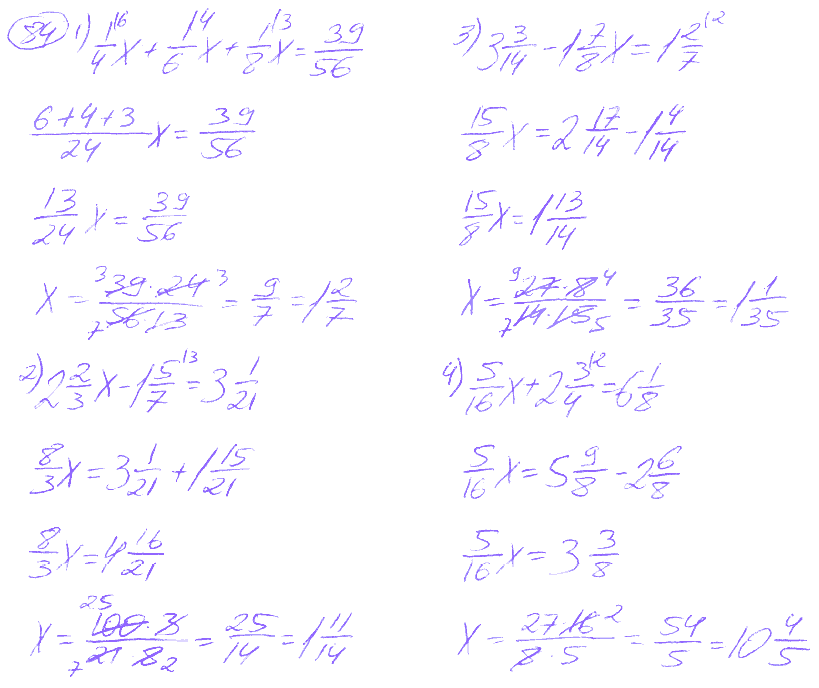 84 1) 1/4^16 x + 1/6^14 x + 1/8^13 x = 39/56
(6+4+3)/24 x = 39/56
13/24 x = 39/56
x = (39·24)/(56·13) = 9/7 = 1 2/7
2) 2 2/3 x - 1 5/7^13 = 3 1/21
8/3 x = 3 1/21 + 1 15/21
8/3 x = 4 16/21
x = (100·3)/(21·8) = 25/14 = 1 11/14
3) 3 3/14 - 1 7/8 x = 1 2/7^12
15/8 x = 2 17/14 - 1 4/14
15/8 x = 1 13/14
x = (27·8)/(14·15) = 36/35 = 1 1/35
4) 5/16 x + 2 3/4^12 = 6 1/8
5/16 x = 5 9/8 - 2 6/8
5/16 x = 3 3/8
x = (27·16)/(8·5) = 54/5 = 10 4/5